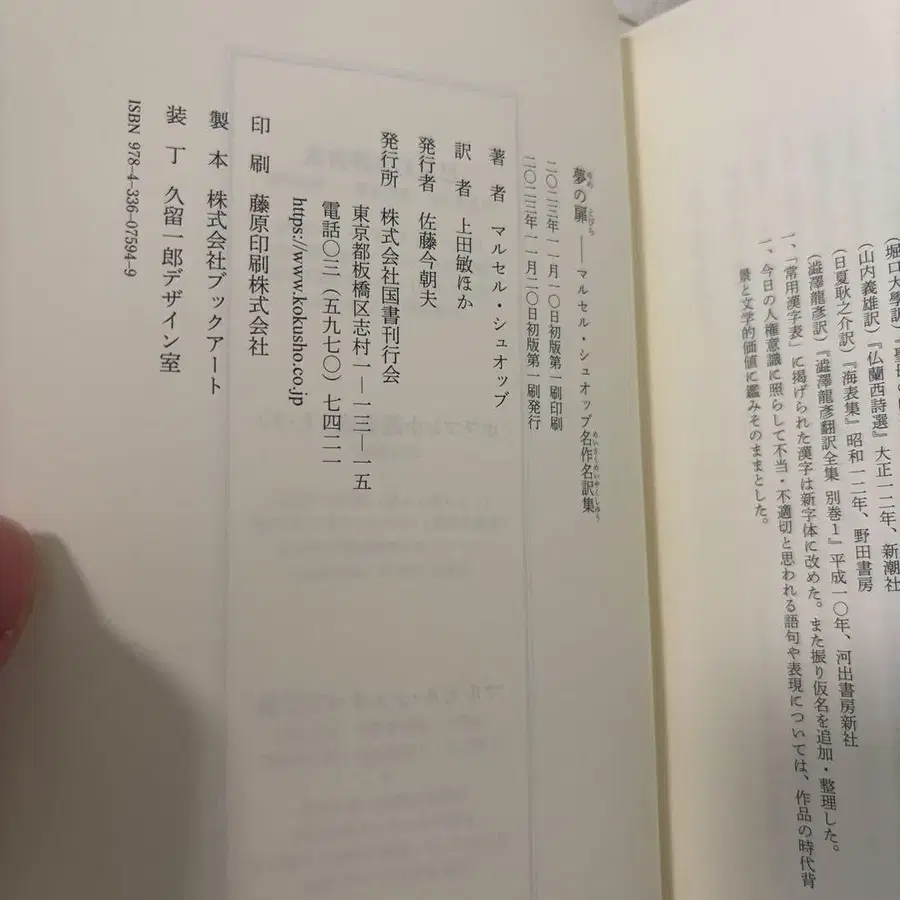 (堀口大學訳)『聖母の
(山内義雄訳)『仏蘭西詩選』大正一二年、新潮社
(日夏耿之介訳)『海表集』昭和一二年、野田書房
(澁澤龍彥訳)『澁澤龍彥翻訳全集 別巻1』平成一〇年、河出書房新社
一、「常用漢字表」に掲げられた漢字は新字体に改めた。また振り仮名を追加・整理した。
一、今日の人権意識に照らして不当・不適切と思われる語句や表現については、作品の時代背
景と文学的価値に鑑みそのままとした。
夢の扉——マルセル・シュオッブ名作名訳集
二〇二三年一一月一〇日初版第一刷印刷
二〇二三年一一月二〇日初版第一刷発行
著者 マルセル・シュオッブ
訳者 上田敏ほか
発行者 佐藤今朝夫
発行所 株式会社国書刊行会
東京都板橋区志村一—一三—一五
電話〇三(五九七〇)七四二一
https://www.kokusho.co.jp
印刷 藤原印刷株式会社
製本 株式会社ブックアート
装丁 久留一郎デザイン室
ISBN 978-4-336-07594-9